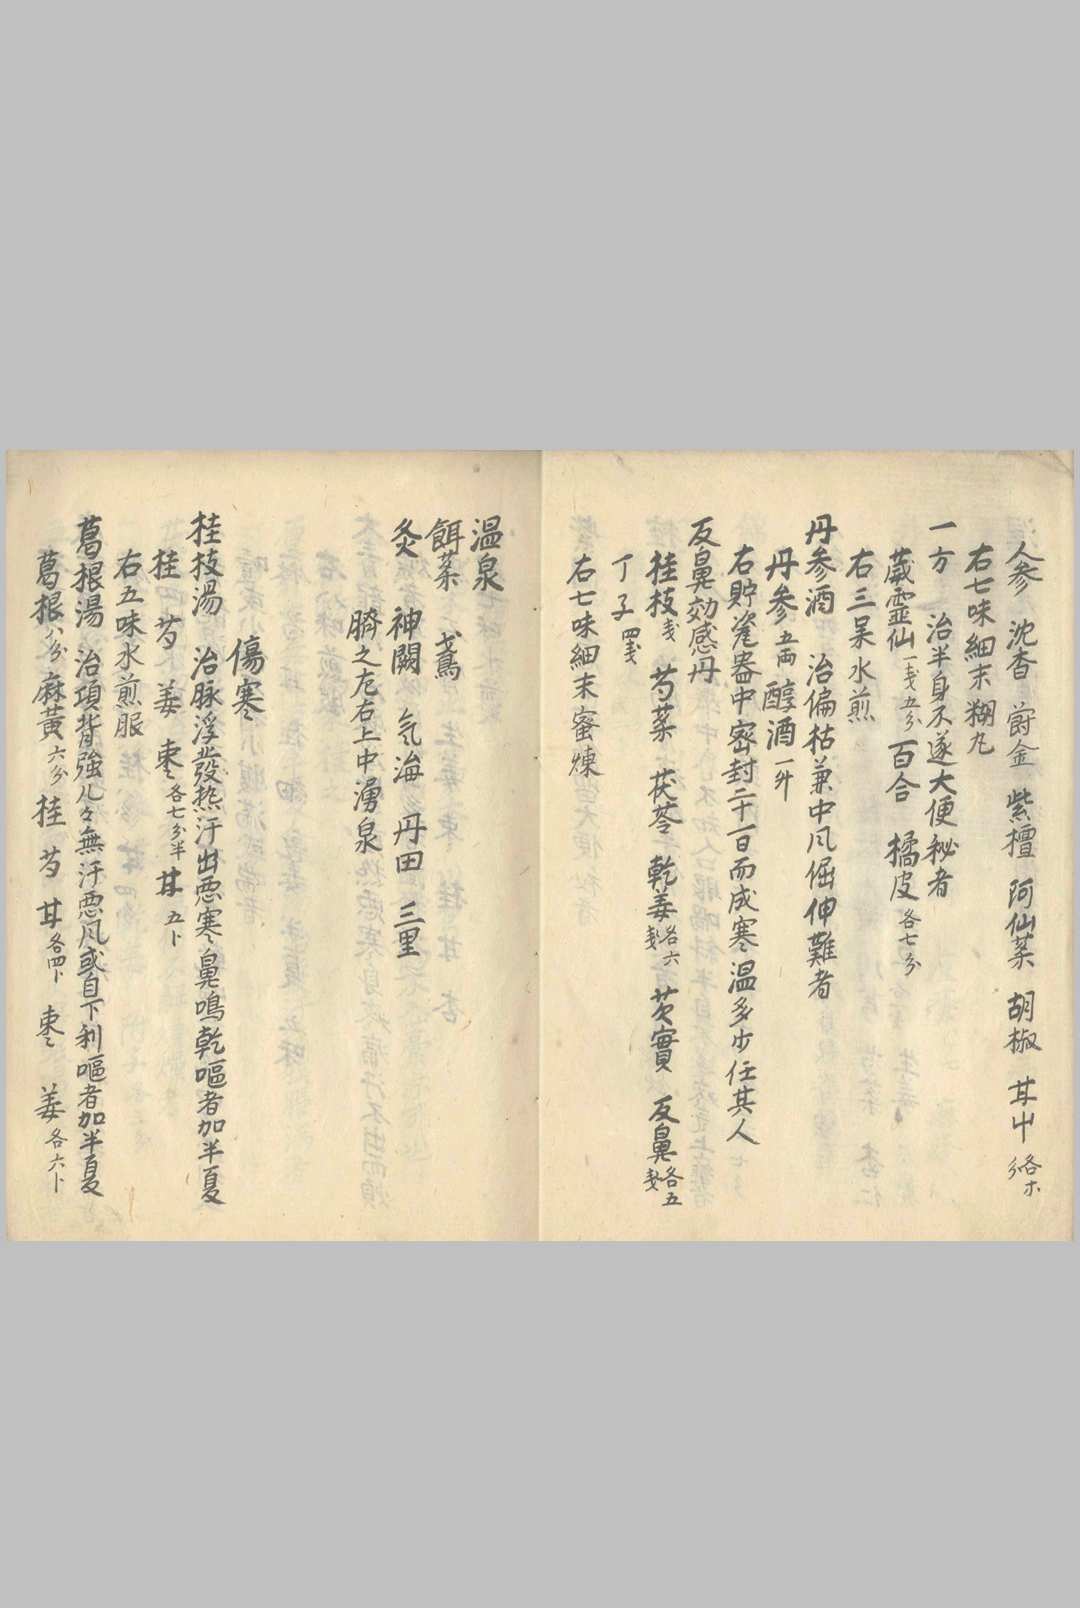 人参 沈香 欝金 紫檀 阿仙薬 胡椒 甘中 各等分
右七味細末糊丸
一方 治半身不遂大便秘者
葳霊仙 一戔五分 百合 橘皮 各七分
右三味水煎
丹参酒 治偏枯兼中凨倔伸難者
丹参 五両 醇酒 一升
右貯瓷器中密封二十一日而成寒温多少任其人
反鼻効感丹
桂枝 戔 芍薬 茯苓 乾姜 各六戔 芡實 反鼻 各五戔
丁子 四戔
右七味細末蜜煉
温泉
餌薬 鳶
灸 神闕 気海 丹田 三里
臍之左右上中湧泉
傷寒
桂枝湯 治脉浮發热汗出悪寒鼻鳴乾嘔者加半夏
桂 芍 姜 棗 各七分半 甘 五卜
右五味水煎服
葛根湯 治項背強几々無汗悪凨或自下利嘔者加半夏
葛根 八分 麻黄 六分 桂 芍 甘 各四卜 棗 姜 各六卜